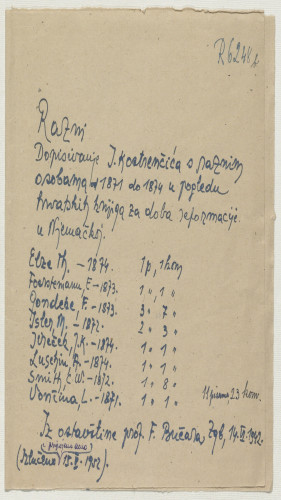 R6248
Razni
Dopisivanje I. Kostrenčića s raznim
osobama od 1871 do 1874 u pogledu
hrvatskih knjiga za doba reformacije
u Njemačkoj.
Elze Th. – 1874. 1 p, 1 kom
Foerstemann E – 1873. 1 " 1 "
F. – 1873. 3 " 7 "
Isler M. – 1872. 2 " 3 "
Jireček, J.K. – 1874. 1 " 1 "
Luschin, A. – 1874. 1 " 1 "
Smith, C.W. – 1872. 1 " 8 "
Vončina, L. – 1871. 1 " 1 "
11 pisama 23 kom.
Iz ostavštine prof. F. Bučara Zgb, 14. 1942.
1902).